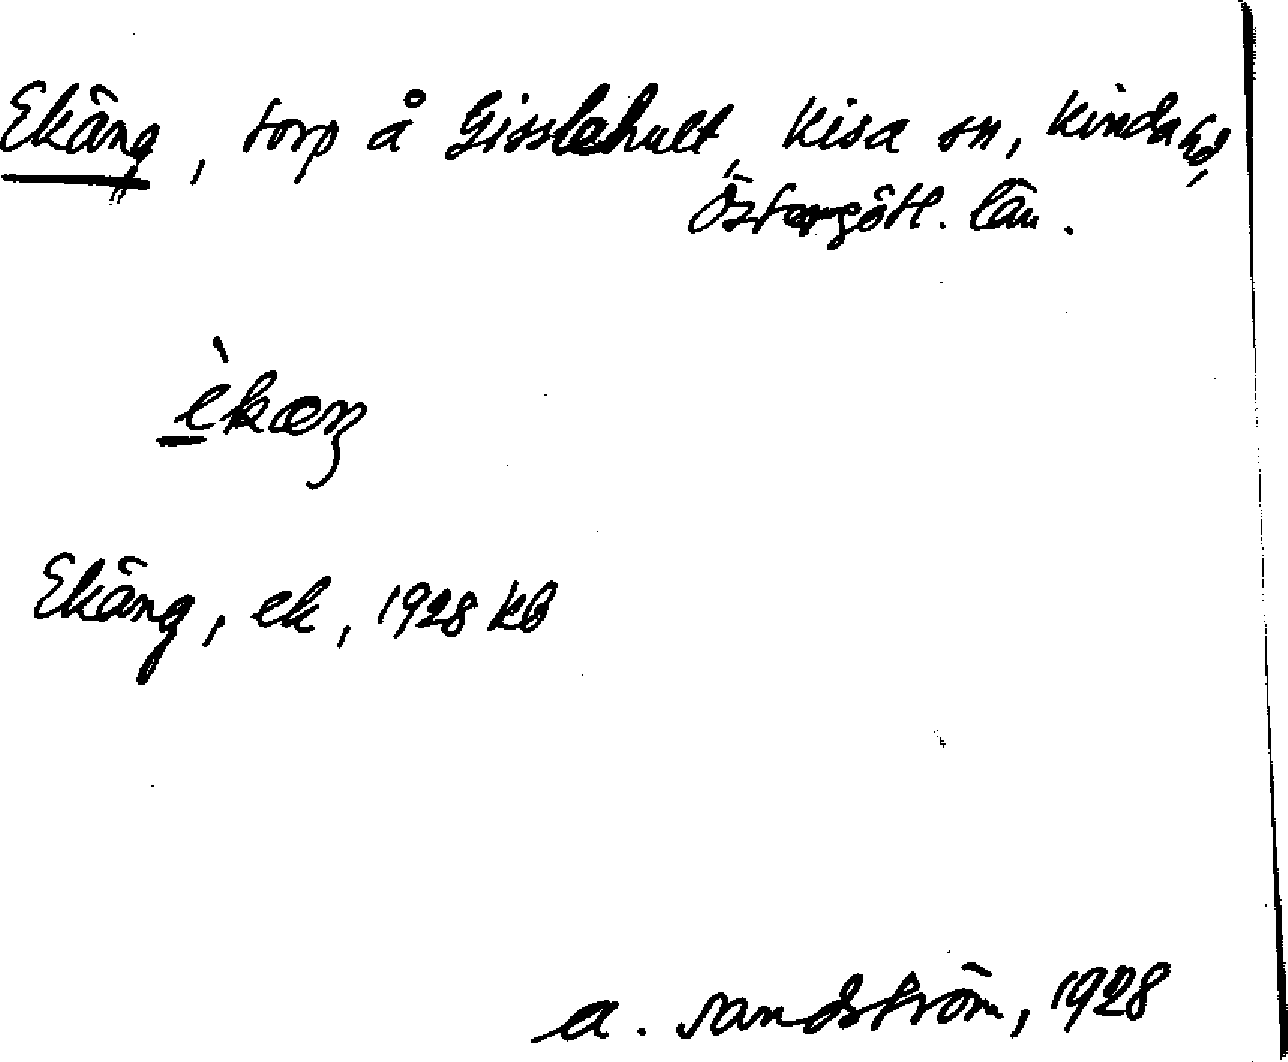 Ekäng, torp å Gisslehult, Kisa sn, Kinda hd,
Östergötl. län.
èkæŋ
Ekäng, ek, 1928 kb
A. Sandström, 1928